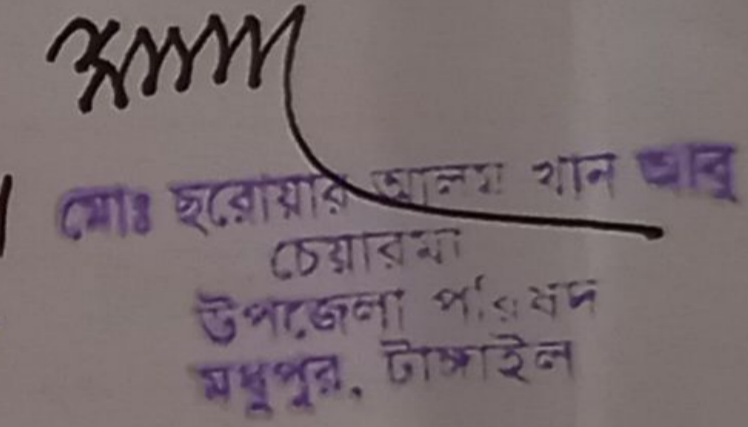 মোঃ ছরোয়ার আলম খান আবু
চেয়ারমা
উপজেলা পরিষদ
মধুপুর, টাঙ্গাইল